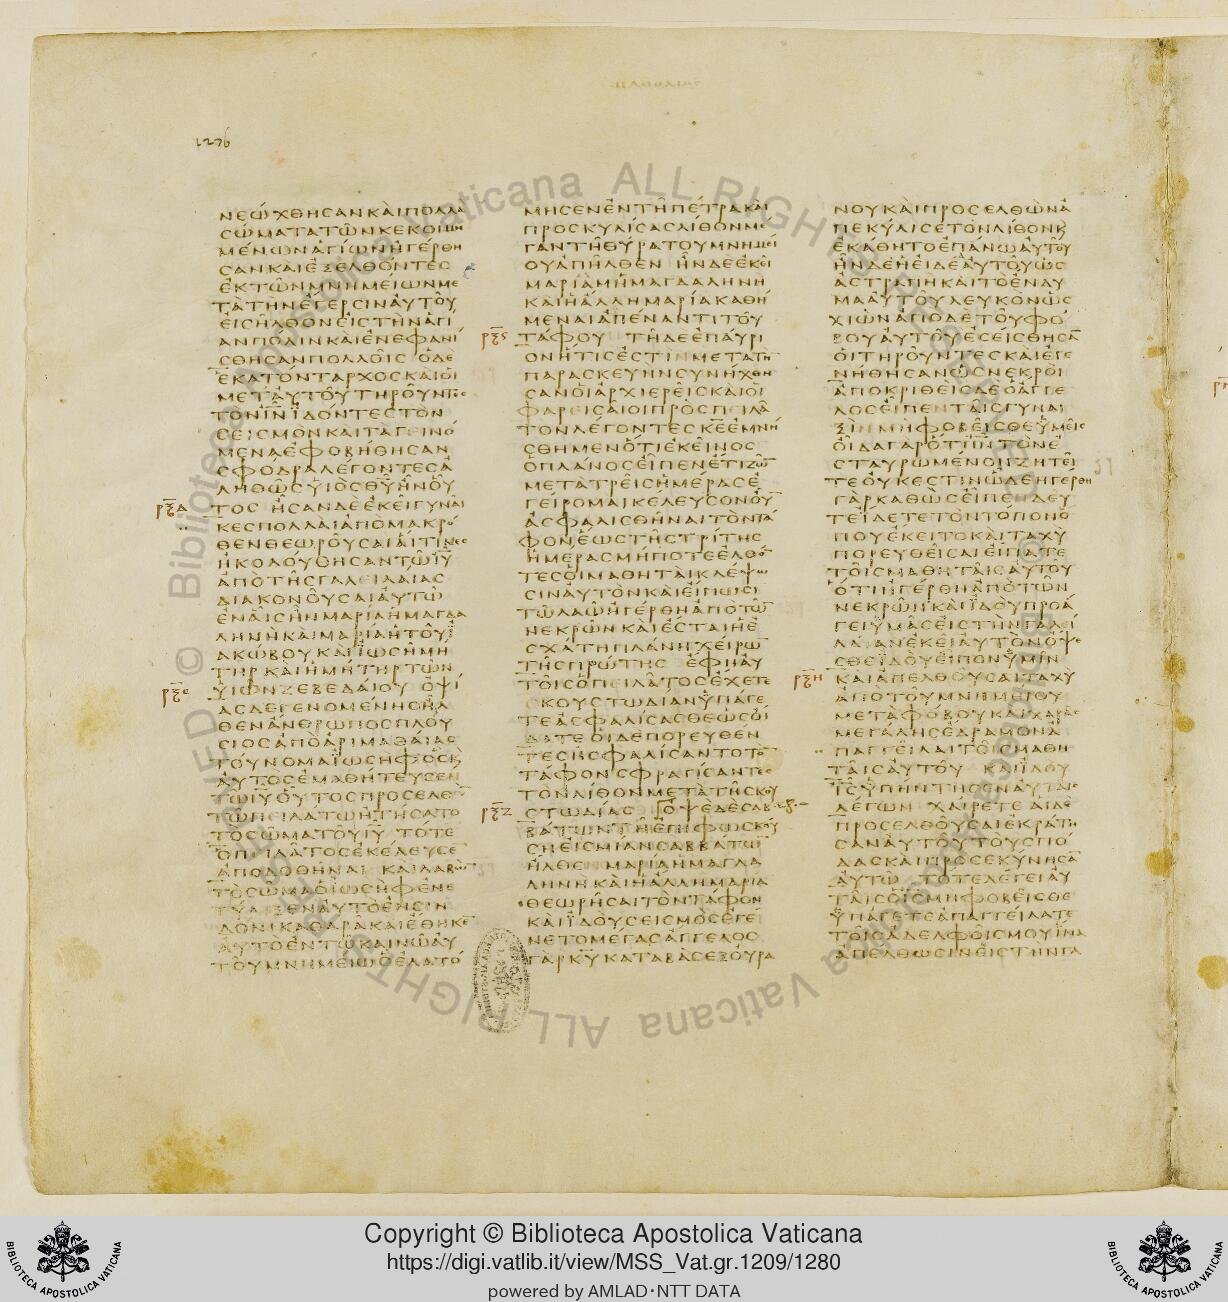 1276
ΝΕΩΧΘΗΣΑΝΚΑΙΠΟΛΛΑ
ΣΩΜΑΤΑΤΩΝΚΕΚΟΙΜΗ
ΜΕΝΩΝΑΓΙΩΝΗΓΕΡΘΗ
ΣΑΝΚΑΙΕΞΕΛΘΟΝΤΕΣ
ΕΚΤΩΝΜΝΗΜΕΙΩΝΜΕ
ΤΑΤΗΝΕΓΕΡΣΙΝΑΥΤΟΥ
ΕΙΣΗΛΘΟΝΕΙΣΤΗΝΑΓΙ
ΑΝΠΟΛΙΝΚΑΙΕΝΕΦΑΝΙ
ΣΘΗΣΑΝΠΟΛΛΟΙΣ ΟΔΕ
ΕΚΑΤΟΝΤΑΡΧΟΣΚΑΙΟΙ
ΜΕΤΑΥΤΟΥΤΗΡΟΥΝΤΕΣ
ΤΟΝΙΝΙΔΟΝΤΕΣΤΟΝ
ΣΕΙΣΜΟΝΚΑΙΤΑΓΕΙΝΟ
ΜΕΝΑΕΦΟΒΗΘΗΣΑΝ
ΣΦΟΔΡΑΛΕΓΟΝΤΕΣΑ
ΛΗΘΩΣΥΙΟΣΘΥΗΝΟΥ
ΤΟΣ ΗΣΑΝΔΕΕΚΕΙΓΥΝΑΙ
ΚΕΣΠΟΛΛΑΙΑΠΟΜΑΚΡΟ
ΘΕΝΘΕΩΡΟΥΣΑΙΑΙΤΙΝΕΣ
ΗΚΟΛΟΥΘΗΣΑΝΤΩΙΥ
ΑΠΟΤΗΣΓΑΛΕΙΛΑΙΑΣ
ΔΙΑΚΟΝΟΥΣΑΙΑΥΤΩ
ΕΝΑΙΣΗΝΜΑΡΙΑΗΜΑΓΔΑ
ΛΗΝΗΚΑΙΜΑΡΙΑΗΤΟΥΙ
ΑΚΩΒΟΥΚΑΙΙΩΣΗΜΗ
ΤΗΡΚΑΙΗΜΗΤΗΡΤΩΝ
ΥΙΩΝΖΕΒΕΔΑΙΟΥ ΟΨΙ
ΑΣΔΕΓΕΝΟΜΕΝΗΣΗΛ
ΘΕΝΑΝΘΡΩΠΟΣΠΛΟΥ
ΣΙΟΣΑΠΟΑΡΙΜΑΘΑΙΑΣ
ΤΟΥΝΟΜΑΙΩΣΗΦΟΣΚΑΙ
ΑΥΤΟΣΕΜΑΘΗΤΕΥΣΕΝ
ΤΩΙΥΟΥΤΟΣΠΡΟΣΕΛΘΩ
ΤΩΠΕΙΛΑΤΩΗΤΗΣΑΤΟ
ΤΟΣΩΜΑΤΟΥΙΥ ΤΟΤΕ
ΟΠΕΙΛΑΤΟΣΕΚΕΛΕΥΣΕ
ΑΠΟΔΟΘΗΝΑΙ ΚΑΙΛΑΒΩ
ΤΟΣΩΜΑΟΙΩΣΗΦΕΝΕ
ΤΥΛΙΞΕΝΑΥΤΟΕΝΣΙΝ
ΔΟΝΙΚΑΘΑΡΑΚΑΙΕΘΗΚΕ
ΑΥΤΟΕΝΤΩΚΑΙΝΩΑΥ
ΤΟΥΜΝΗΜΕΙΩΟΕΛΑΤΟ
ΜΗΣΕΝΕΝΤΗΠΕΤΡΑΚΑΙ
ΠΡΟΣΚΥΛΙΣΑΣΛΙΘΟΝΜΕ
ΓΑΝΤΗΘΥΡΑΤΟΥΜΝΗΜΕΙ
ΟΥΑΠΗΛΘΕΝ ΗΝΔΕΕΚΕΙ
ΜΑΡΙΑΜΗΜΑΓΔΑΛΗΝΗ
ΚΑΙΗΑΛΛΗΜΑΡΙΑΚΑΘΗ
ΜΕΝΑΙΑΠΕΝΑΝΤΙΤΟΥ
ΤΑΦΟΥ ΤΗΔΕΕΠΑΥΡΙ
ΟΝΗΤΙΣΕΣΤΙΝΜΕΤΑΤΗ
ΠΑΡΑΣΚΕΥΗΝΣΥΝΗΧΘΗ
ΣΑΝΟΙΑΡΧΙΕΡΕΙΣΚΑΙΟΙ
ΦΑΡΕΙΣΑΙΟΙΠΡΟΣΠΕΙΛΑ
ΤΟΝΛΕΓΟΝΤΕΣΚΕΕΜΝΗ
ΣΘΗΜΕΝΟΤΙΕΚΕΙΝΟΣ
ΟΠΛΑΝΟΣΕΙΠΕΝΕΤΙΖΩ
ΜΕΤΑΤΡΕΙΣΗΜΕΡΑΣΕ
ΓΕΙΡΟΜΑΙΚΕΛΕΥΣΟΝΟΥ
ΑΣΦΑΛΙΣΘΗΝΑΙΤΟΝΤΑ
ΦΟΝΕΩΣΤΗΣΤΡΙΤΗΣ
ΗΜΕΡΑΣΜΗΠΟΤΕΕΛΘΟ
ΤΕΣΟΙΜΑΘΗΤΑΙΚΛΕΨΩ
ΣΙΝΑΥΤΟΝΚΑΙΕΙΠΩΣΙ
ΤΩΛΑΩΗΓΕΡΘΗΑΠΟΤΩ
ΝΕΚΡΩΝΚΑΙΕΣΤΑΙΗΕ
ΣΧΑΤΗΠΛΑΝΗΧΕΙΡΩ
ΤΗΣΠΡΩΤΗΣ ΕΦΗΑΥ
ΤΟΙΣΟΠΕΙΛΑΤΟΣΕΧΕΤΕ
ΚΟΥΣΤΩΔΙΑΝΥΠΑΓΕ
ΤΕΑΣΦΑΛΙΣΑΣΘΕΩΣΟΙ
ΔΑΤΕ ΟΙΔΕΠΟΡΕΥΘΕΝ
ΤΕΣΗΣΦΑΛΙΣΑΝΤΟΤΟ
ΤΑΦΟΝΣΦΡΑΓΙΣΑΝΤΕΣ
ΤΟΝΛΙΘΟΝΜΕΤΑΤΗΣΚΟΥ
ΣΤΩΔΙΑΣ ΟΨΕΔΕΣΑΒ
ΒΑΤΩΝΤΗΕΠΙΦΩΣΚΟΥ
ΣΗΕΙΣΜΙΑΝΣΑΒΒΑΤΩ
ΗΛΘΕΝ ΜΑΡΙΑΗΜΑΓΔΑ
ΛΗΝΗΚΑΙΗΑΛΛΗΜΑΡΙΑ
ΘΕΩΡΗΣΑΙΤΟΝΤΑΦΟΝ
ΚΑΙΙΔΟΥΣΕΙΣΜΟΣΕΓΕ
ΝΕΤΟΜΕΓΑΣΑΓΓΕΛΟΣ
ΓΑΡΚΥΚΑΤΑΒΑΣΕΞΟΥΡΑ
ΝΟΥΚΑΙΠΡΟΣΕΛΘΩΝΑ
ΠΕΚΥΛΙΣΕΤΟΝΛΙΘΟΝΚΑΙ
ΕΚΑΘΗΤΟΕΠΑΝΩΑΥΤΟΥ
ΗΝΔΕΗΕΙΔΕΑΑΥΤΟΥΩΣ
ΑΣΤΡΑΠΗΚΑΙΤΟΕΝΔΥ
ΜΑΑΥΤΟΥΛΕΥΚΟΝΩΣ
ΧΙΩΝΑΠΟΔΕΤΟΥΦΟ
ΒΟΥΑΥΤΟΥΕΣΕΙΣΘΗΣΑ
ΟΙΤΗΡΟΥΝΤΕΣΚΑΙΕΓΕ
ΝΗΘΗΣΑΝΩΣΝΕΚΡΟΙ
ΑΠΟΚΡΙΘΕΙΣΔΕΟΑΓΓΕ
ΛΟΣΕΙΠΕΝΤΑΙΣΓΥΝΑΙ
ΞΙΝΜΗΦΟΒΕΙΣΘΕΥΜΕΙΣ
ΟΙΔΑΓΑΡΟΤΙΙΝΤΟΝΕ
ΣΤΑΥΡΩΜΕΝΟΝΖΗΤΕΙ
ΤΕΟΥΚΕΣΤΙΝΩΔΕΗΓΕΡΘΗ
ΓΑΡΚΑΘΩΣΕΙΠΕΝΔΕΥ
ΤΕΙΔΕΤΕΤΟΝΤΟΠΟΝΟ
ΠΟΥΕΚΕΙΤΟΚΑΙΤΑΧΥ
ΠΟΡΕΥΘΕΙΣΑΙΕΙΠΑΤΕ
ΤΟΙΣΜΑΘΗΤΑΙΣΑΥΤΟΥ
ΟΤΙΗΓΕΡΘΗΑΠΟΤΩΝ
ΝΕΚΡΩΝΚΑΙΙΔΟΥΠΡΟΑ
ΓΕΙΥΜΑΣΕΙΣΤΗΝΓΑΛΙ
ΛΑΙΑΝΕΚΕΙΑΥΤΟΝΟΨΕ
ΣΘΕΙΔΟΥΕΙΠΟΝΥΜΙΝ
ΚΑΙΑΠΕΛΘΟΥΣΑΙΤΑΧΥ
ΑΠΟΤΟΥΜΝΗΜΕΙΟΥ
ΜΕΤΑΦΟΒΟΥΚΑΙΧΑΡΑΣ
ΜΕΓΑΛΗΣΕΔΡΑΜΟΝΑ
ΠΑΓΓΕΙΛΑΙΤΟΙΣΜΑΘΗ
ΤΑΙΣΑΥΤΟΥ ΚΑΙΙΔΟΥ
ΙΣΥΠΗΝΤΗΣΕΝΑΥΤΑΙΣ
ΛΕΓΩΝ ΧΑΙΡΕΤΕ ΑΙΔΕ
ΠΡΟΣΕΛΘΟΥΣΑΙΕΚΡΑΤΗ
ΣΑΝΑΥΤΟΥΤΟΥΣΠΟ
ΔΑΣΚΑΙΠΡΟΣΕΚΥΝΗΣΑ
ΑΥΤΩ ΤΟΤΕΛΕΓΕΙΑΥ
ΤΑΙΣΟΙΣΜΗΦΟΒΕΙΣΘΕ
ΥΠΑΓΕΤΕΑΠΑΓΓΕΙΛΑΤΕ
ΤΟΙΣΑΔΕΛΦΟΙΣΜΟΥΙΝΑ
ΑΠΕΛΘΩΣΙΝΕΙΣΤΗΝΓΑ
Copyright © Biblioteca Apostolica Vaticana
https://digi.vatlib.it/view/MSS_Vat.gr.1209/1280
powered by AMLAD·NTT DATA
BIBLIOTECA APOSTOLICA VATICANA
BIBLIOTECA APOSTOLICA VATICANA